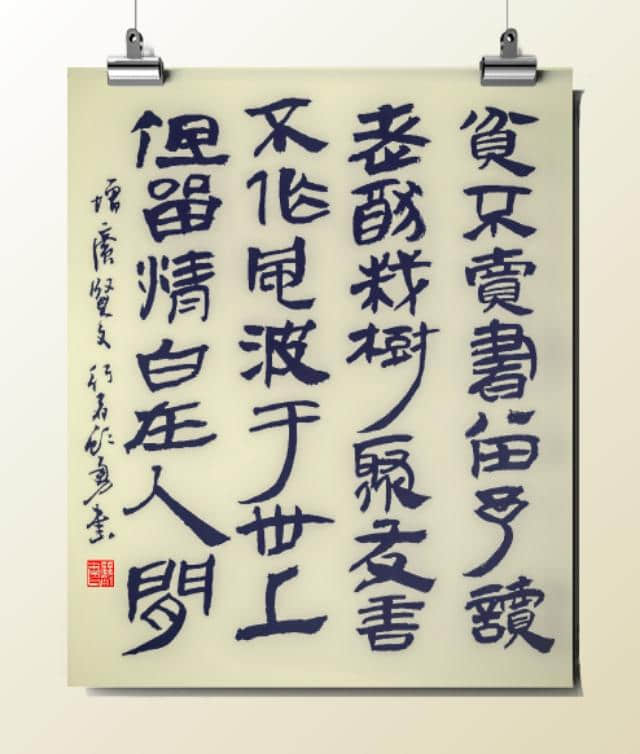 貧不賣書留予讀
老猶栽樹聚友善
不作風波于世上
但留清白在人間
增廣賢文